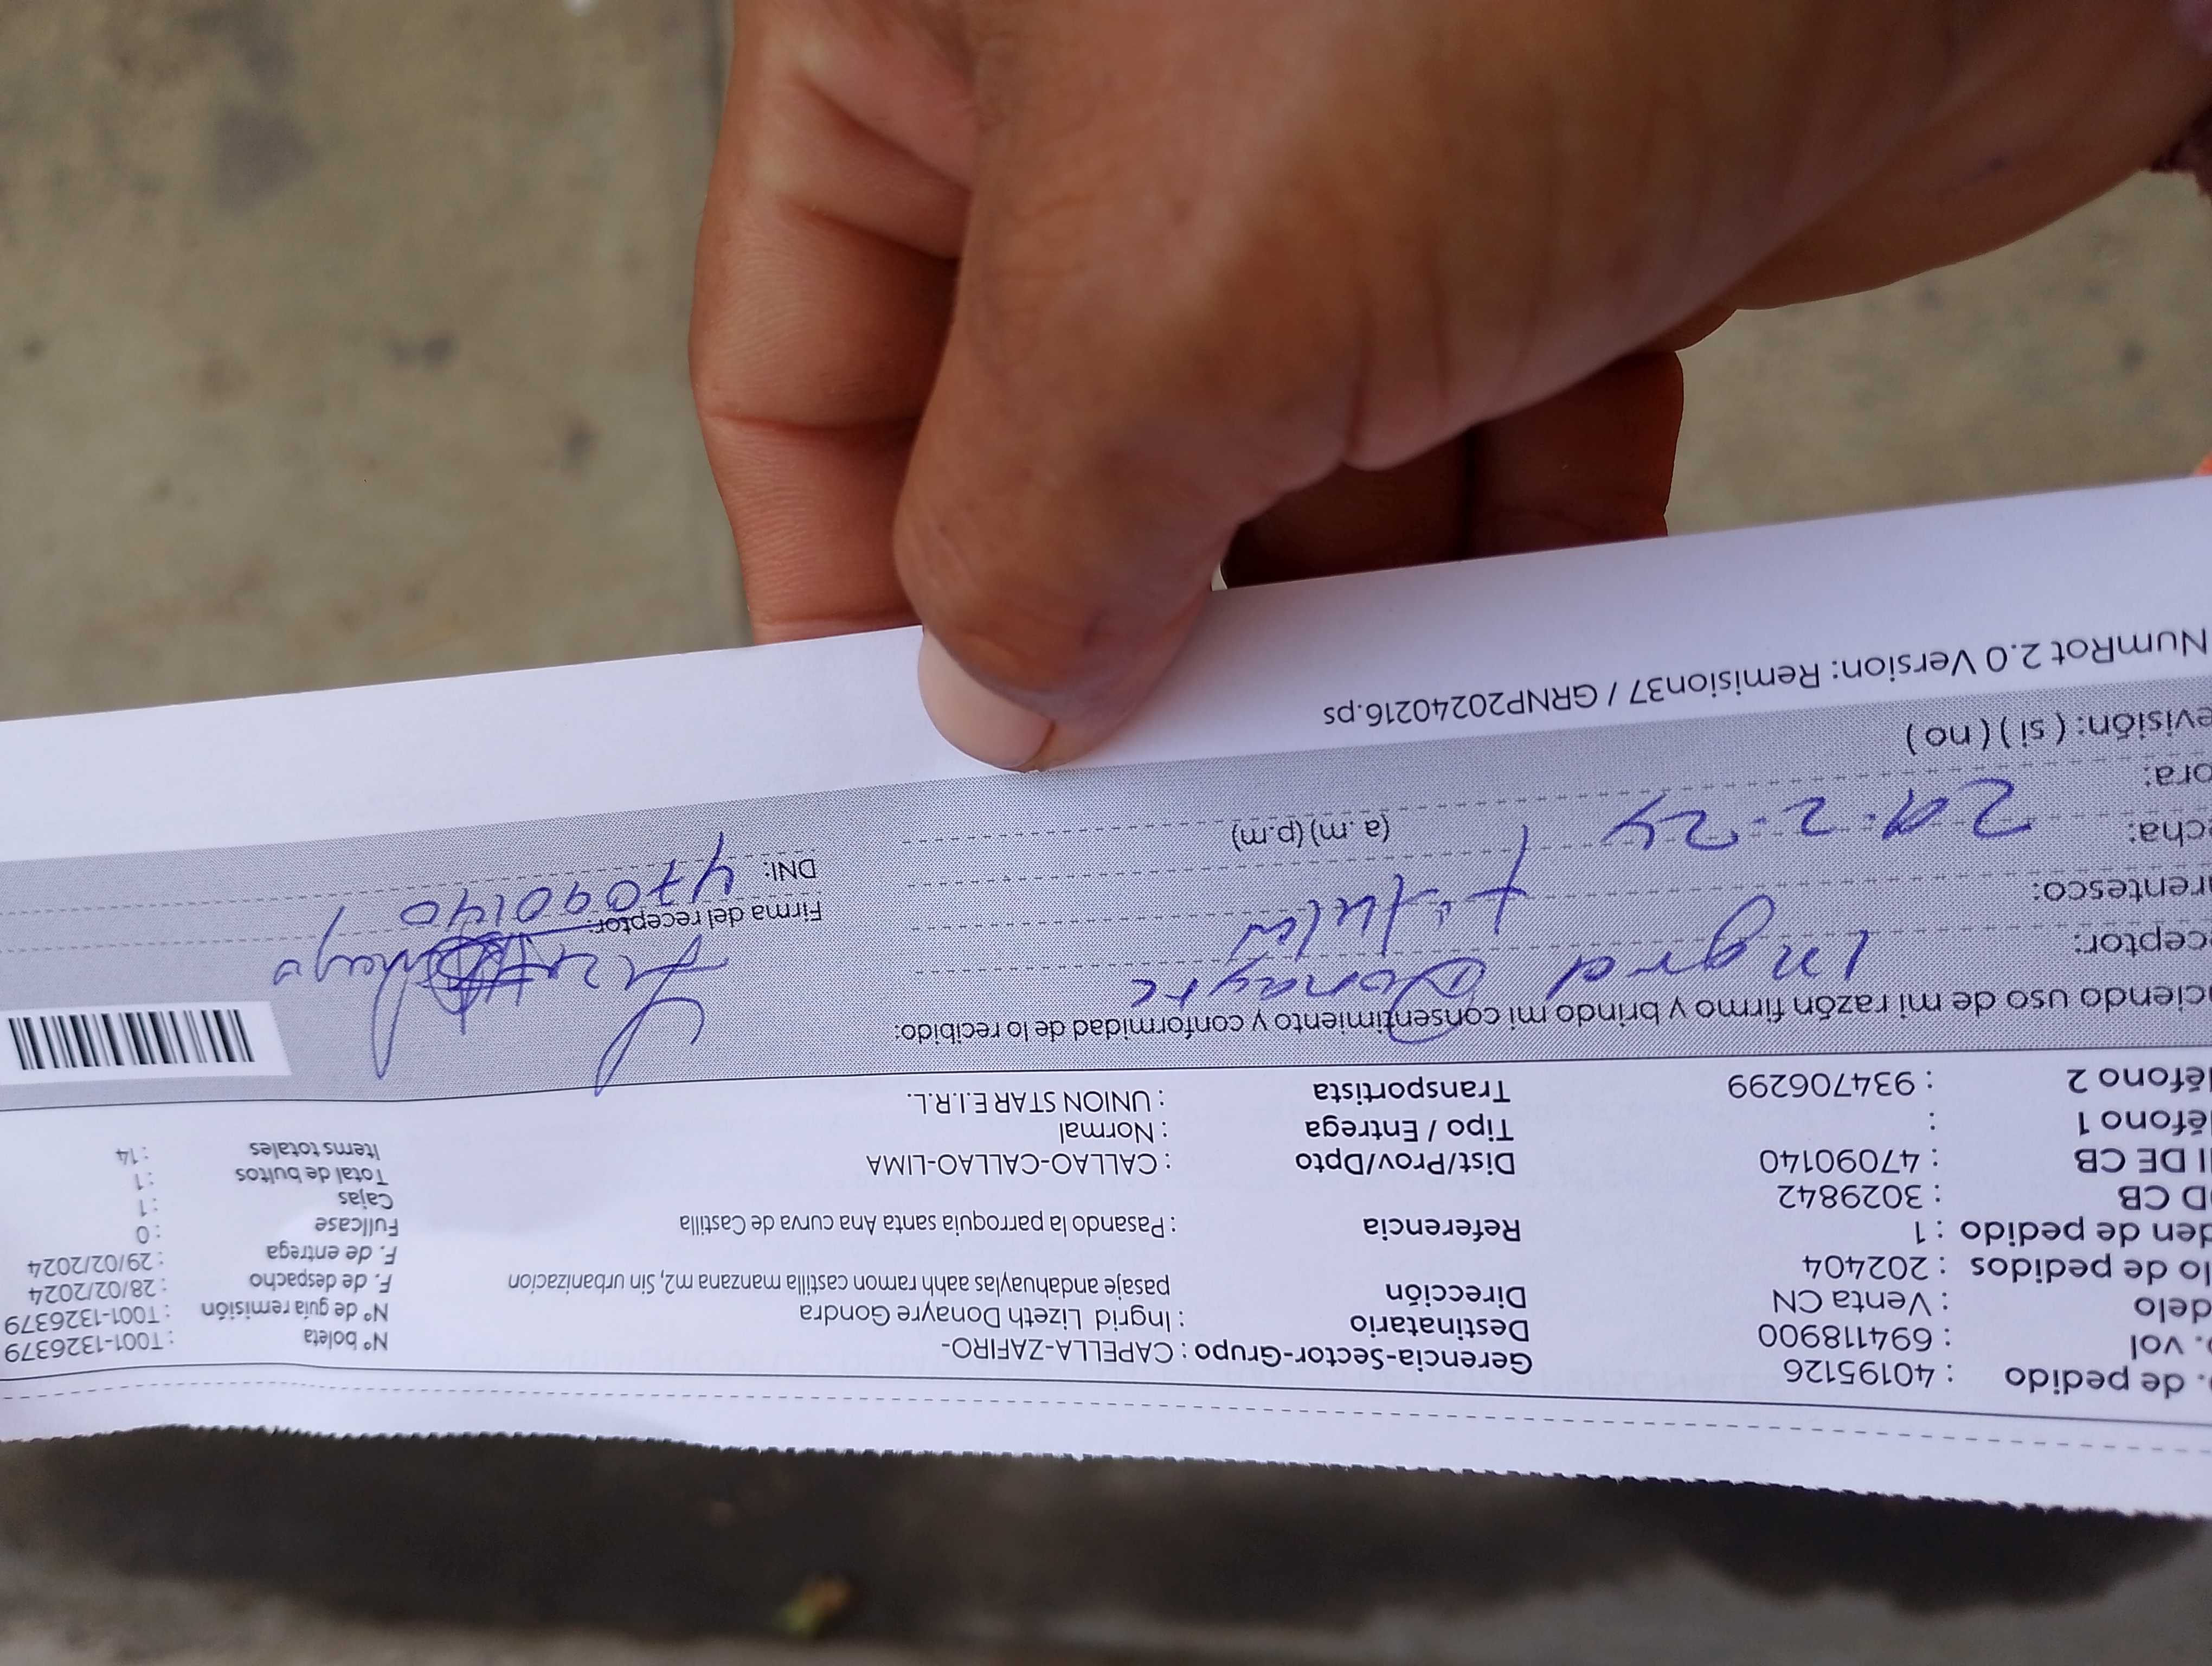 . de pedido : 40195126 Gerencia-Sector-Grupo : CAPELLA-ZAFIRO- N° boleta : T001-1326379
. vol : 694118900 Destinatario : Ingrid Lizeth Donayre Gondra N° de guia remisión : T001-1326379
delo : Venta CN Dirección pasaje andahuaylas aahh ramon castilla manzana m2, Sin urbanizacion F. de despacho : 28/02/2024
lo de pedidos : 202404 F. de entrega : 29/02/2024
den de pedido : 1 Referencia : Pasando la parroquia santa Ana curva de Castilla Fullcase : 0
D CB : 3029842 Cajas : 1
I DE CB : 47090140 Dist/Prov/Dpto : CALLAO-CALLAO-LIMA Total de bultos : 1
léfono 1 : Tipo / Entrega : Normal Items totales : 14
léfono 2 : 934706299 Transportista : UNION STAR E.I.R.L.
ciendo uso de mi razón firmo y brindo mi consentimiento y conformidad de lo recibido:
ceptor: Ingrd Donayre
rentesco: Firma del receptor:
cha: 29-2-24 DNI: 47090140
ora: (a.m) (p.m)
evisión: ( si ) ( no )
NumRot 2.0 Version: Remision37 / GRNP20240216.ps